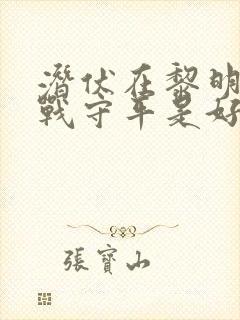 潛伏在黎明
戰守年是好
張寶山